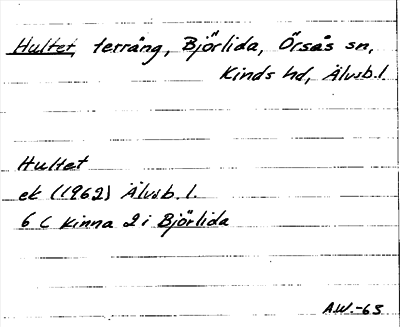 Hultet, terräng, Björlida, Örsås sn,
Kinds hd, Älvsb. l
Hultet
ek (1962) Älvsb. l.
6 C Kinna 2 i Björlida
A.W.-63